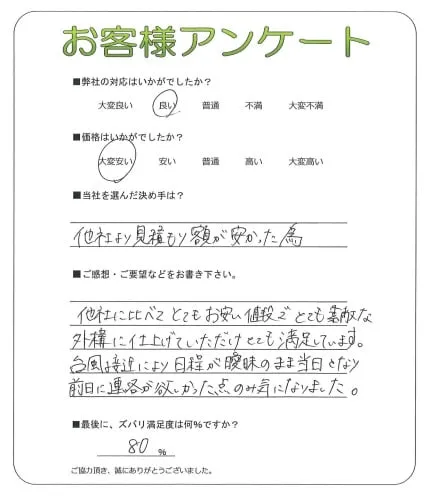 お客様アンケート
■弊社の対応はいかがでしたか?
大変良い 良い 普通 不満 大変不満
■価格はいかがでしたか?
大変安い 安い 普通 高い 大変高い
■当社を選んだ決め手は?
他社より見積もり額が安かった為
■ご感想・ご要望などをお書き下さい。
他社に比べてとてもお安い値段でとても素敵な
外構に仕上げていただけとても満足しています。
台風接近により日程が曖昧のまま当日となり
前日に連絡が欲しかった点のみ気になりました。
■最後に、ズバリ満足度は何%ですか?
80 %
ご協力頂き、誠にありがとうございました。